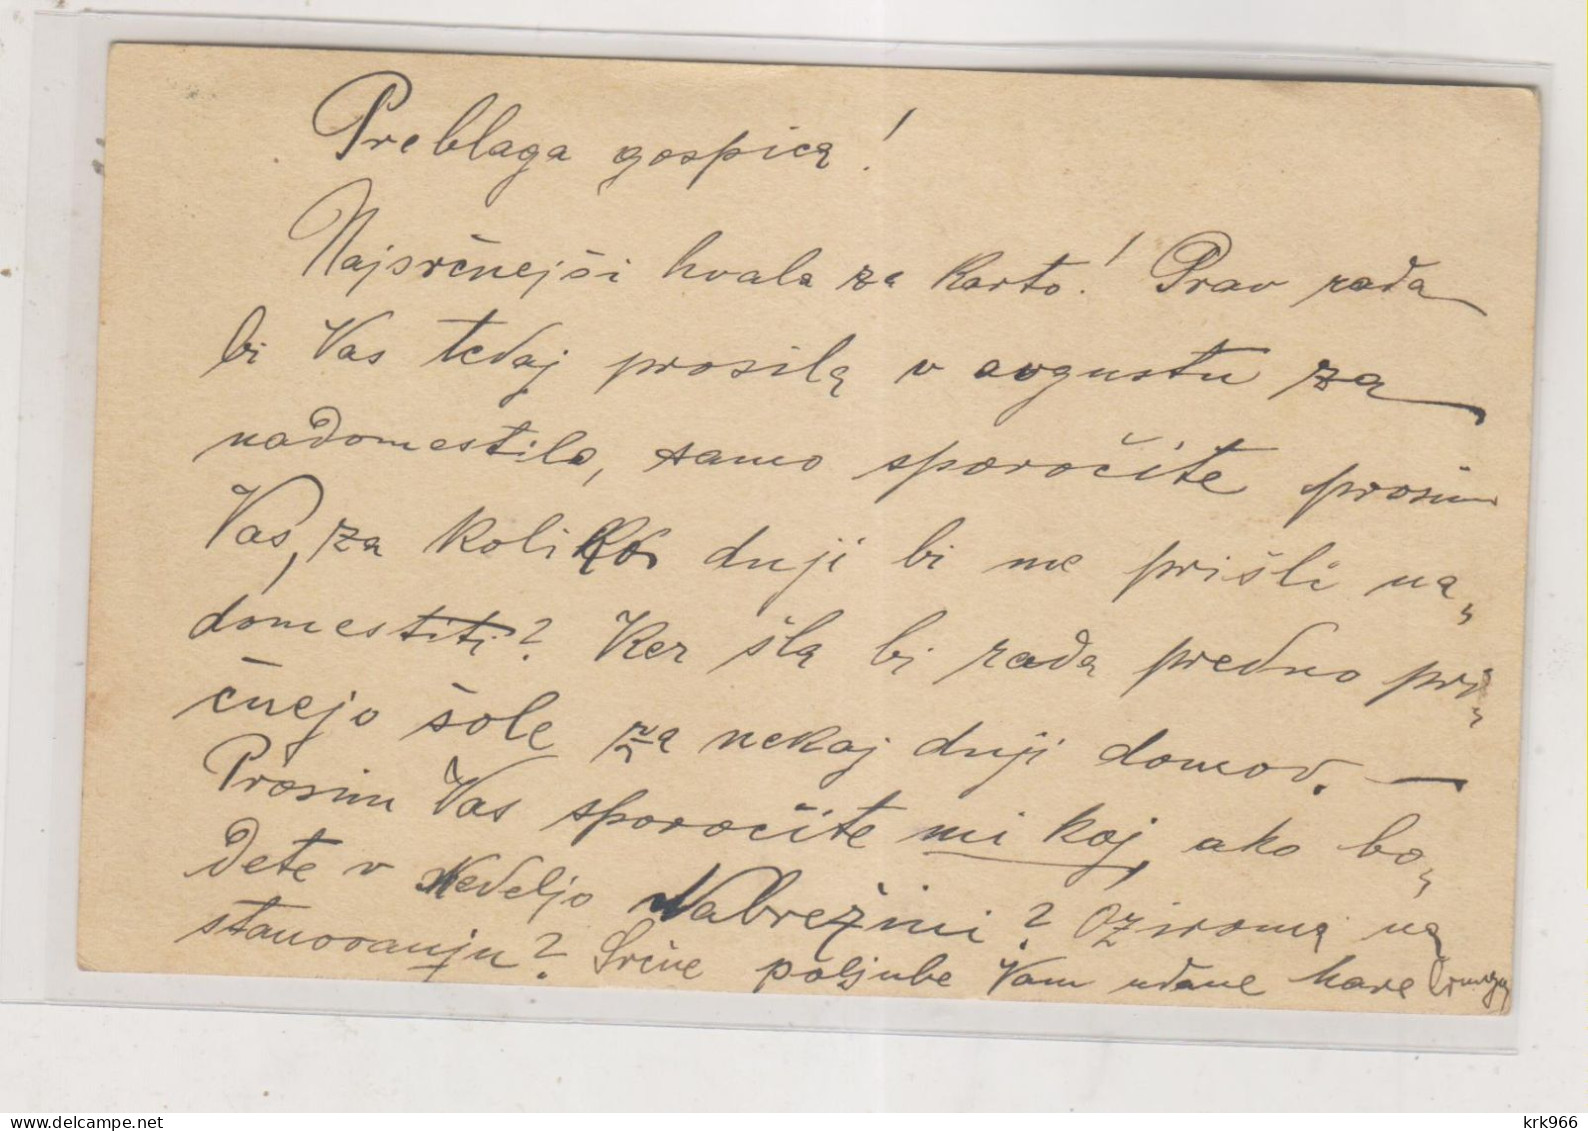 Preblaga gospica!
Najsrčnejši hvala za karto! Prav rada
bi Vas tedaj prosila v avgustu za
nadomestilo, samo sporočite prosim
Vas, za koliko dnji bi me prišli na„
domestiti? Ker šla bi rada predno pri„
čnejo šole za nekaj dnji domov. —
Prosim Vas sporočite mi koj, ako bo„
dete v Nedeljo Nabrežini? Oziroma na
stanovanju? Srčne poljube Vam udane
krk966